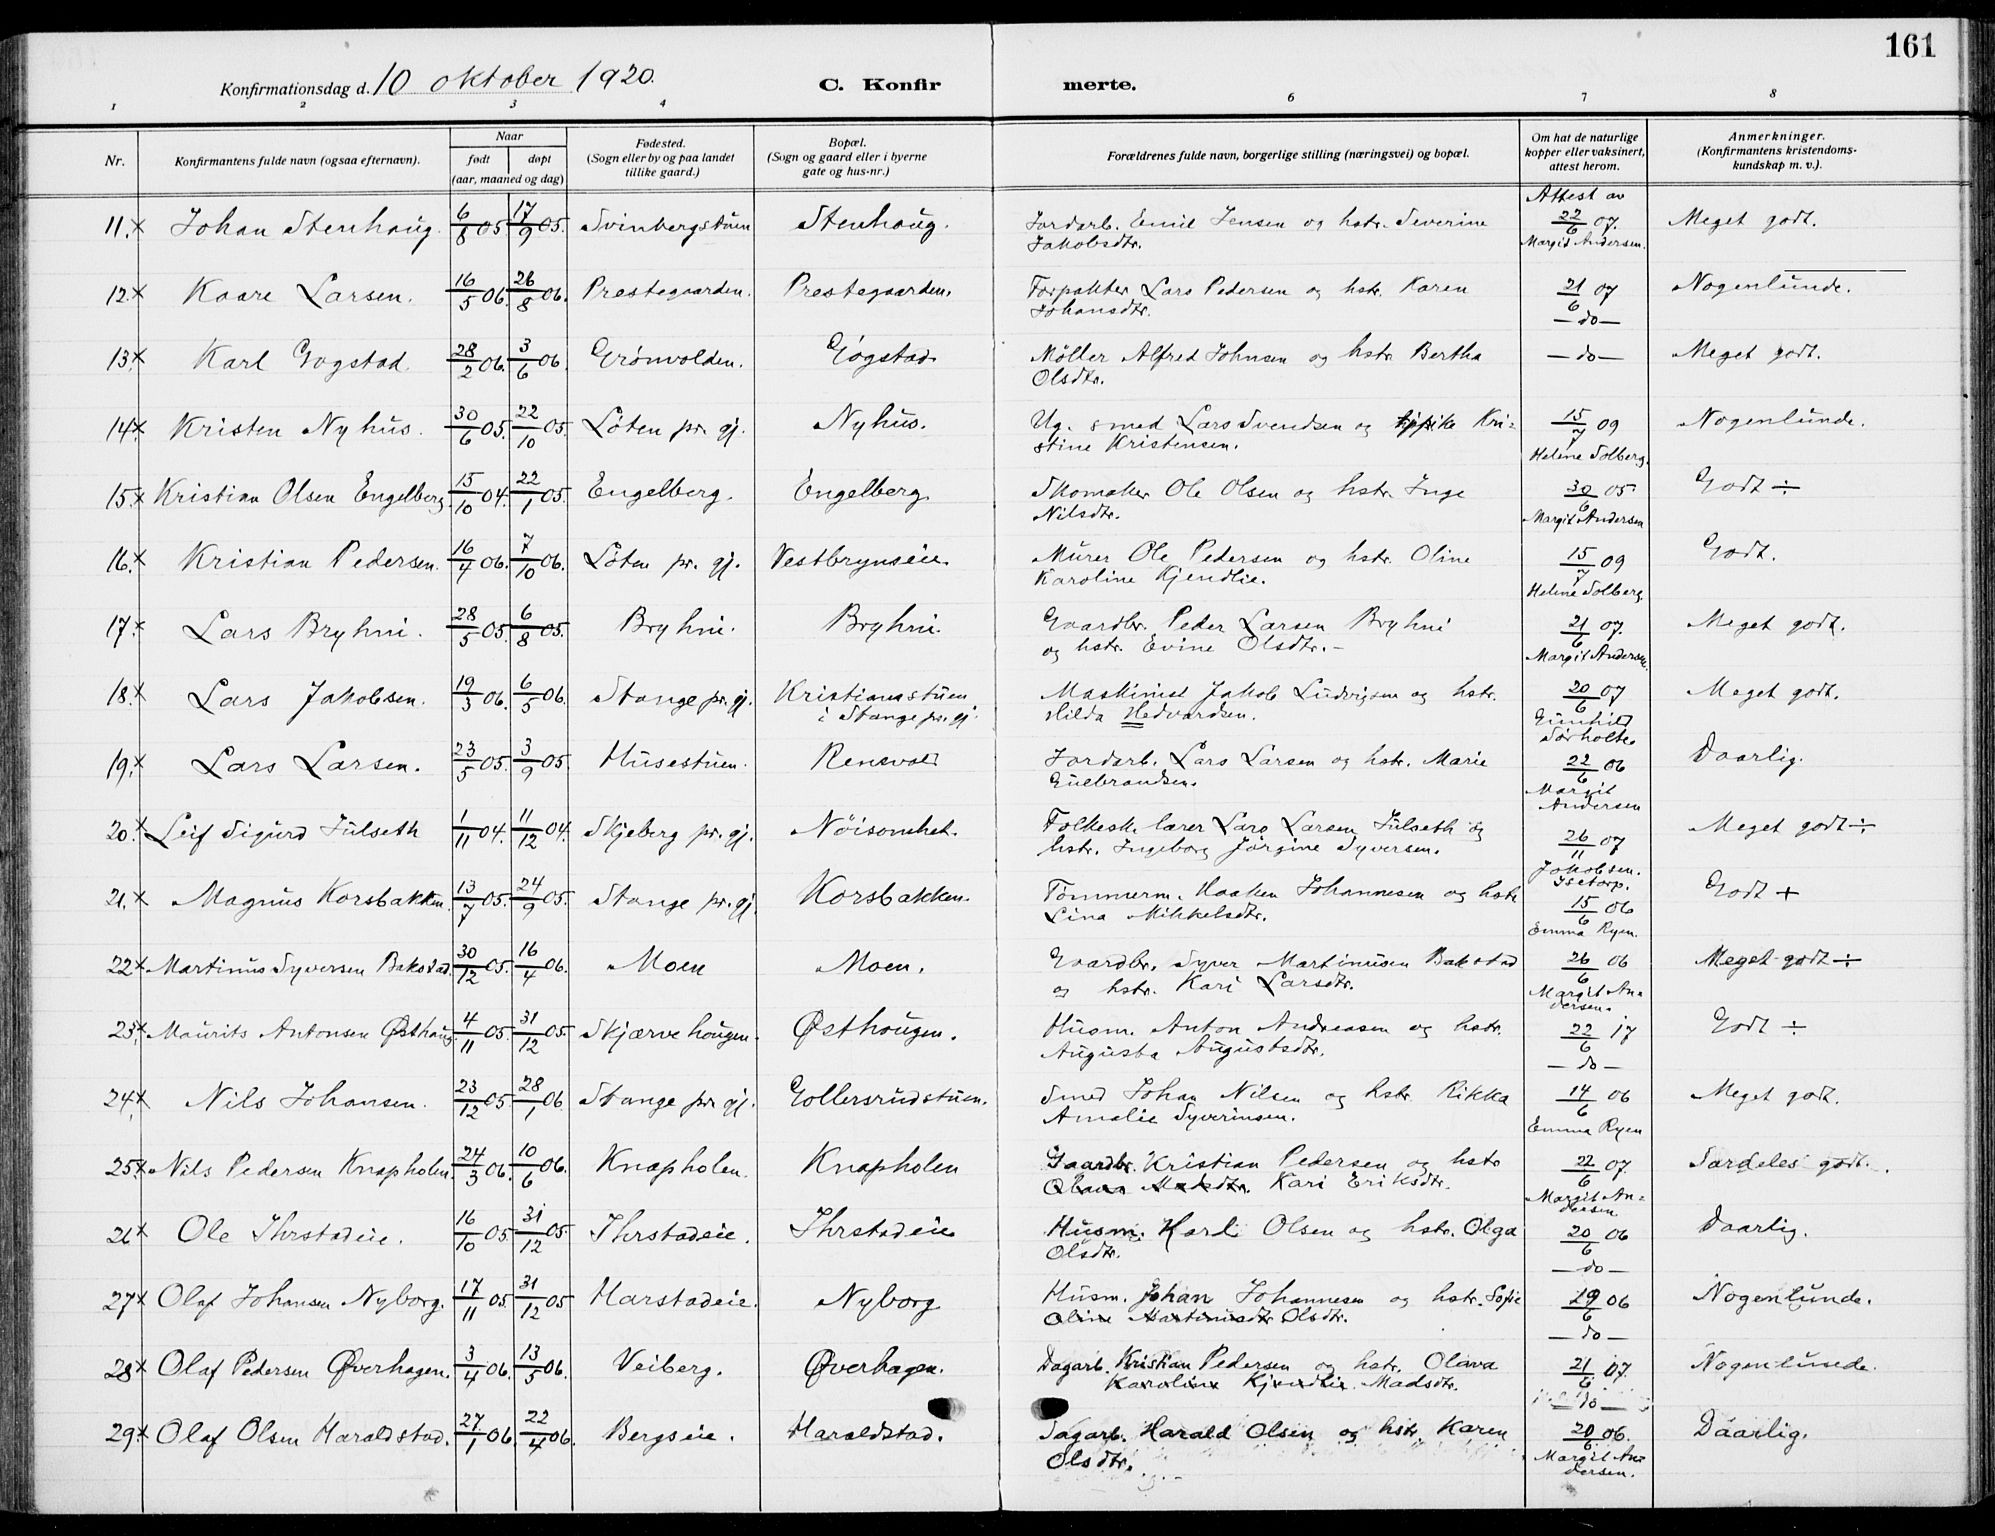 161
Konfirmationsdag d. 10 oktober 1920. C. Konfirmerte.
1 2 3 4 6 7 8
Nr. Konfirmantens fulde navn (ogsaa efternavn). Naar født døpt (aar, maaned og dag) Fødested. (Sogn eller by og paa landet tillike gaard.) Bopæl. (Sogn og gaard eller i byerne gate og hus-nr.) Forældrenes fulde navn, borgerlige stilling (næringsvei) og bopæl. Om hat de naturlige kopper eller vaksinert, attest herom. Anmerkninger. (Konfirmantens kristendomskundskap m. v.).
11. x Johan Stenhaug. 6/8 05 17/9 05. Svinbergstuen Stenhaug. Jordarb. Emil Jensen og hstr. Severine Attest av 22/6 07. Meget godt.
Jakobsdtr. Margit Andersen.
12. x Kaare Larsen. 16/5 06. 26/8 06. Prestegaarden. Prestegaarden. Forpakter Lars Pedersen og hstr. Karen 21/6 07 Nogenlunde.
Johansdtr. —do—
13. x Karl Gogstad. 28/2 06. 3/6 06. Grønvolden. Gogstad. Møller Alfred Johnsen og hstr. Bertha —do— Meget godt.
Olsdtr.
14. x Kristen Nyhus. 30/6 05. 22/10 05. Löten pr. gj. Nyhus. Ug. smed Lars Svendsen og pike Kri=  15/7 09 Nogenlunde.
stine Kristensen. Helene Solberg.
15. x Kristian Olsen Engelberg 15/10 04. 22/1 05. Engelberg. Engelberg. Skomaker Ole Olsen og hstr. Inge 30/6 05 Godt ÷
Nilsdtr. Margit Andersen
16. x Kristian Pedersen. 16/4 06. 7/10 06. Löten pr. gj. Vestbrynseie. Murer Ole Pedersen og hstr. Oline 15/7 09 Godt.
Karoline Kjendlie. Helene Solberg
17. x Lars Bryhni. 28/5 05. 6/8 05. Bryhni. Bryhni. Gaardbr. Peder Larsen Bryhni 21/6 07. Meget godt.
og hstr. Evine Olsdtr.- Margit Andersen.
18. x Lars Jakobsen. 19/3 06. 6/5 06. Stange pr. gj. Kristianastuen Maskinist Jakob Ludvigsen og hstr. 20/6 07 Meget godt.
i Stange pr. gj. Hilda Hedvardsen. Gunhild Sørholte
19. x Lars Larsen. 23/5 05. 3/9 05. Husestuen. Rensvold Jordarb. Lars Larsen og hstr. Marie 22/6 06 Daarlig.
Gulbrandsen. Margit Andersen
20. x Leif Sigurd Julseth 1/11 04. 11/12 04. Skjeberg pr. gj. Nöisomhet. Folkesk. lærer Lars Larsen Julseth og 26/11 07 Meget godt ÷
hstr. Ingeborg Jørgine Syversen. Jakobsen.
21. x Magnus Korsbakken. 13/7 05. 24/9 05. Stange pr. gj. Korsbakken. Tømmerm. Haaken Johannesen og hstr. 15/6 06 Godt +
Lina Mikkelsdtr. Emma Ryen.
22. x Martinus Syversen Bakstad. 30/12 05. 16/4 06. Moen Moen. Gaardbr. Syver Martinusen Bakstad 26/6 06 Meget godt ÷
og hstr. Kari Larsdtr. Margit An=dersen.
23. x Maurits Antonsen Østhaug 4/11 05. 31/12 05. Skjærvehougen. Østhougen. Husm. Anton Andreasen og hstr. 22/6 17 Godt ÷
Augusta Augustsdtr. —do—
24. x Nils Johansen. 23/12 05. 28/1 06 Stange pr. gj. Gollersrudstuen. Smed Johan Nilsen og hstr. Rikka 14/6 06 Meget godt.
Amalie Syverinsen. Emma Ryen
25. x Nils Pedersen Knapholen. 24/3 06. 10/6 06. Knapholen. Knapholen Gaardbr. Kristian Pedersen og hstr 22/6 07. Særdeles godt.
Olava Madsdtr. Kari Eriksdtr. Margit An=dersen
26. x Ole Ihrstadeie. 16/10 05 31/12 05. Ihrstadeie. Ihrstadeie Husm. Karl Olsen og hstr. Olga 20/6 06 Daarlig.
Olsdtr. —do—
27. x Olaf Johansen Nyborg. 17/11 05 31/12 05 Harstadeie. Nyborg Husm. Johan Johannesen og hstr. Sofie 19/6 06 Nogenlunde.
Oline Martinusdtr Olsdtr. —do—
28. x Olaf Pedersen Øverhagen. 3/4 06. 13/5 06. Veiberg. Øverhagen. Dagarb. Kristian Pedersen og hstr. Olava 21/6 07. Nogenlunde.
Karoline Kjendlie. Madsdtr. —do—
29. x Olaf Olsen Haraldstad. 27/1 06. 22/4 06. Bergseie. Haraldstad. Dagarb. Harald Olsen og hstr. Karen 20/6 06. Daarlig.
Olsdtr. Margit An=dersen.